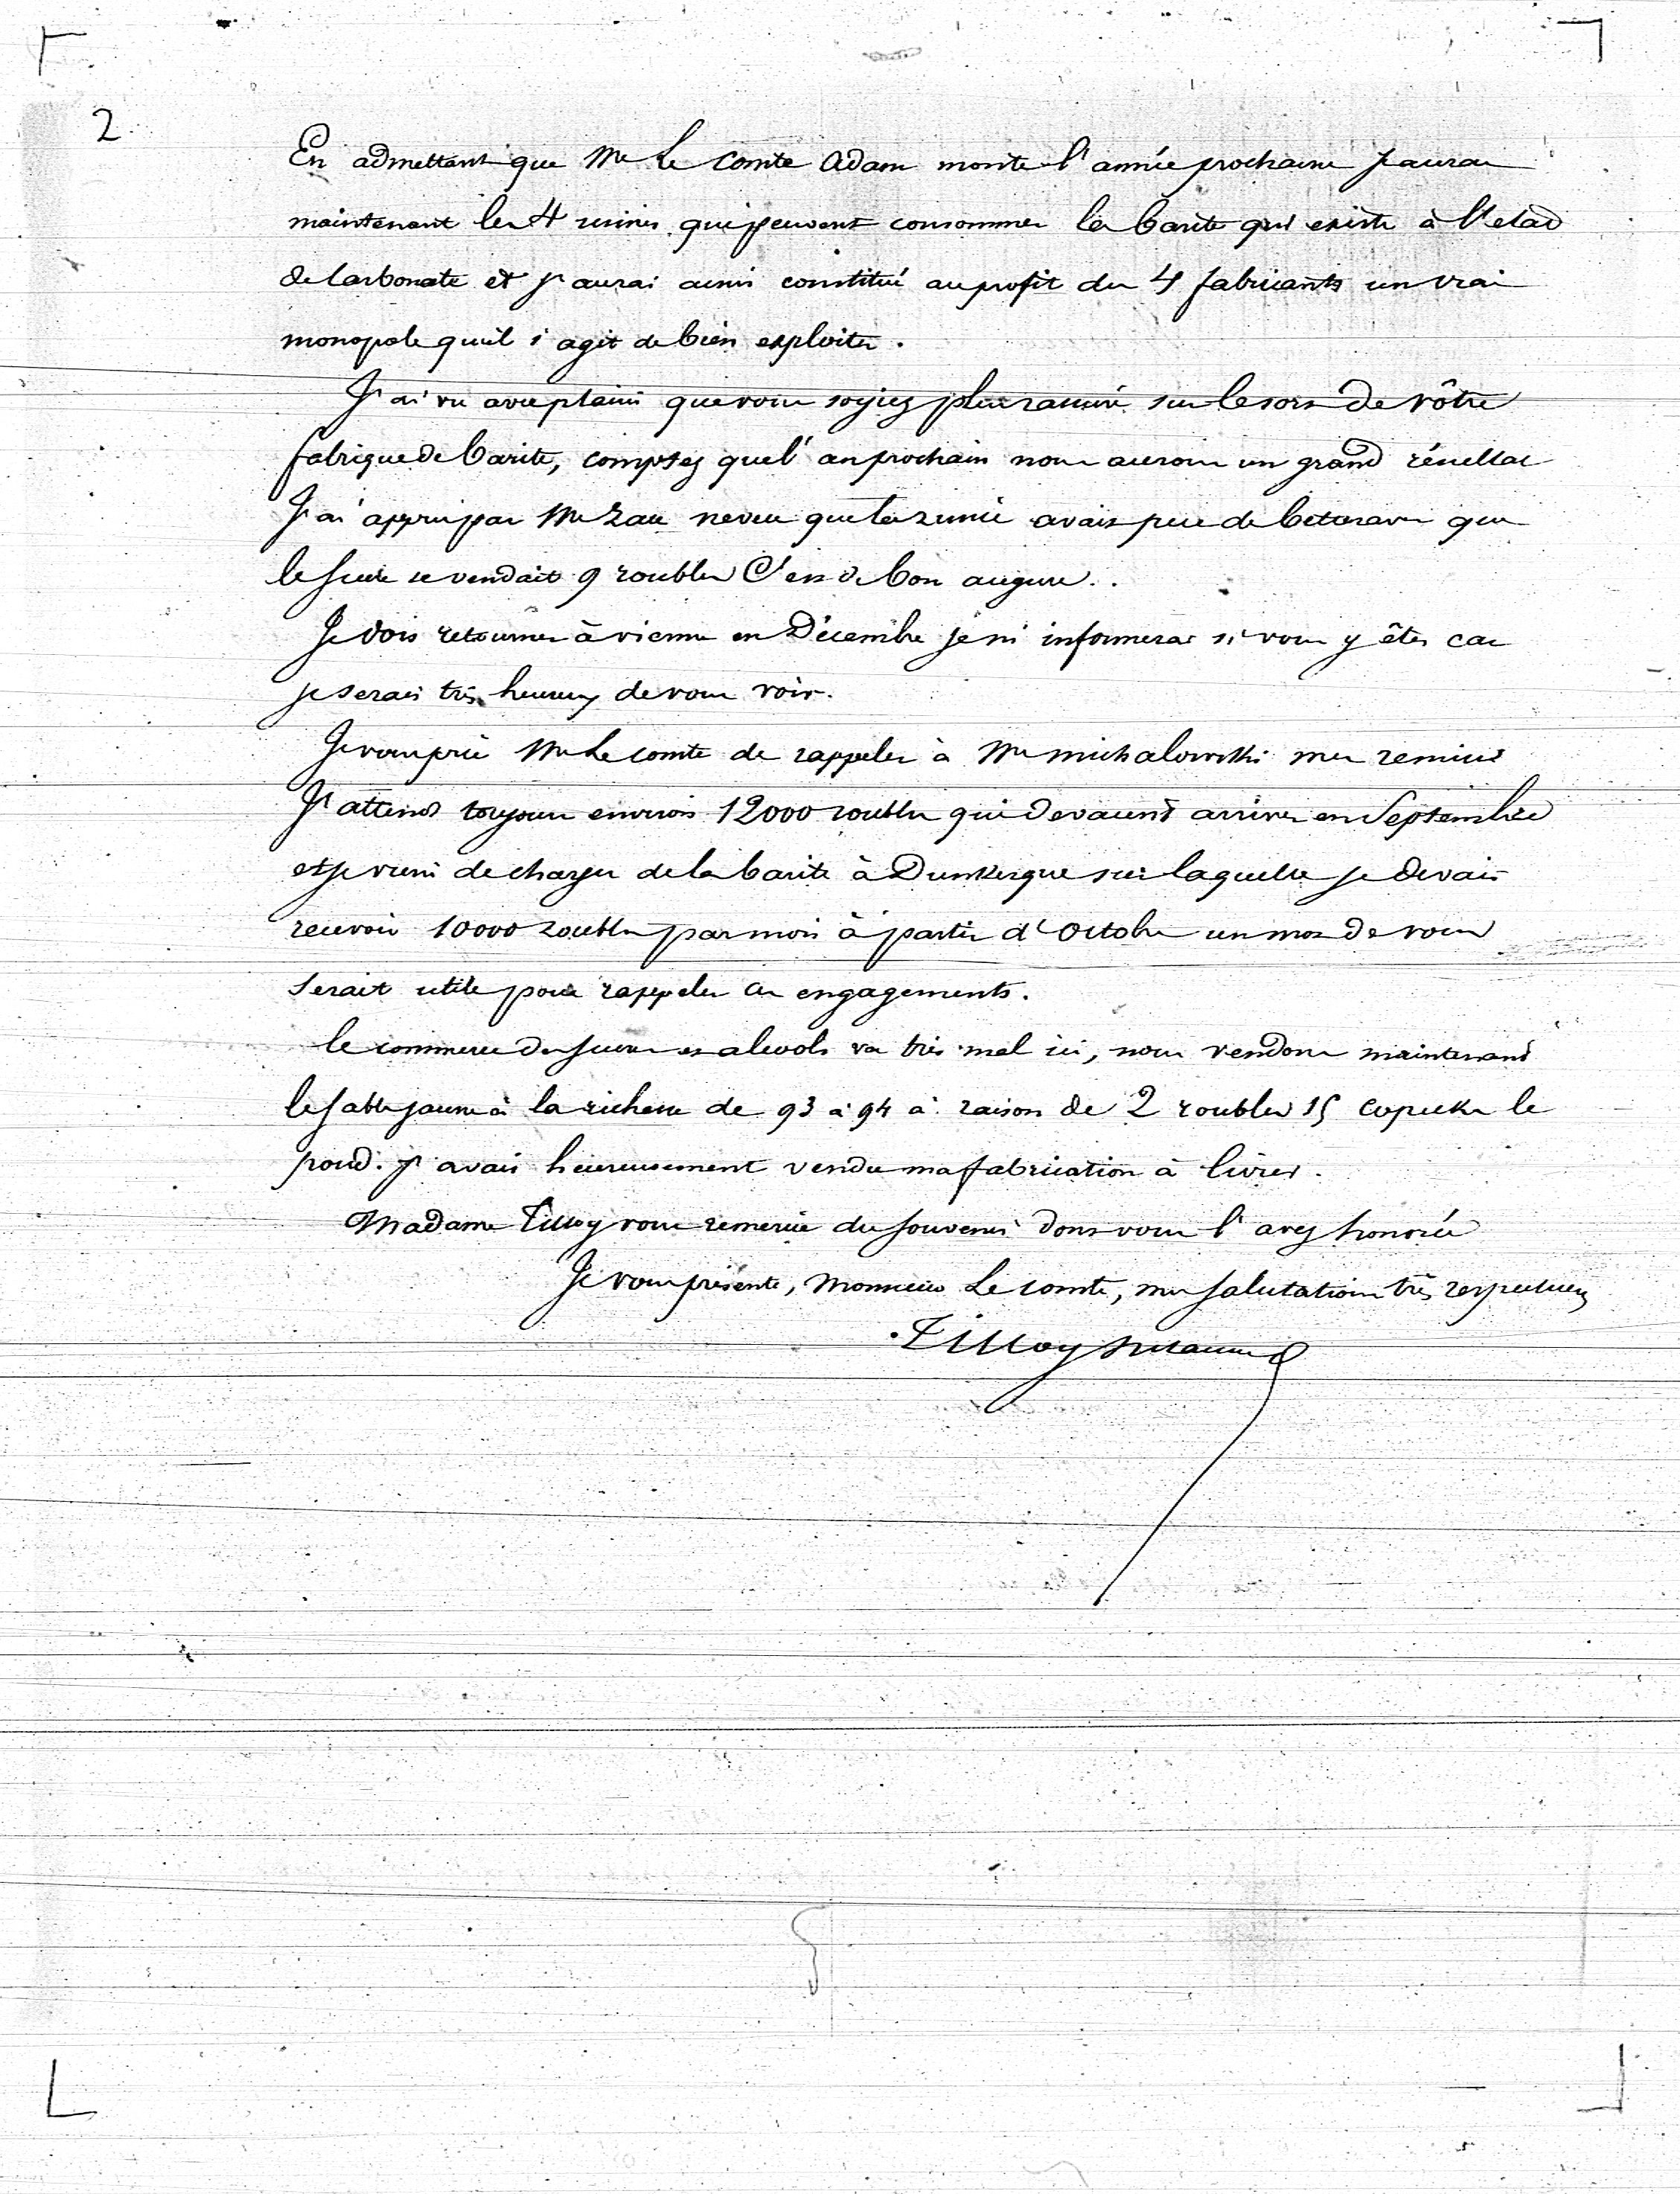 2
En admettant que Mr Le Comte Adam monte l'année prochaine j'aurai
maintenant les 4 usines qui peuvent consommer la barite qui existe à l'etat
de Carbonate et j'aurai ainsi constitué au profit des 4 fabricants un vrai
monopole qu'il s'agit de bien exploiter.
J'ai vu avec plaisir que vous soyiez plus rassuré sur le sort de vôtre
fabrique de barite, comptez que l'an prochain nous aurons un grand résultat
J'ai appris par Mr Rau neveu que la russie avait peu de betteraves que
le sucre se vendait 9 roubles C'est de bon augure..
Je dois retourner à vienne en Décembre je m'informerai si vous y êtes car
je serais très heureux de vous voir.
Je vous prie Mr Le comte de rappeler à Mr michalowski mes remises
J'attends toujours environ 12000 roubles qui devaient arriver en Septembre
et je viens de charger de la barite à Dunkerque sur laquelle je devais
recevoir 10000 roubles par mois à partir d'Octobre un mot de vous
serait utile pour rappeler ces engagements.
le commerce des sucres et alcools va très mal ici, nous vendons maintenant
le sable jaune à la richesse de 93 à 94 à raison de 2 roubles 15 copecks le
poud. j'avais heureusement vendu ma fabrication à livrer.
Madame Tilloy vous remercie du souvenir dont vous l'avez honorée
Je vous présente, Monsieur Le comte, mes salutations très respectueuses
Tilloy